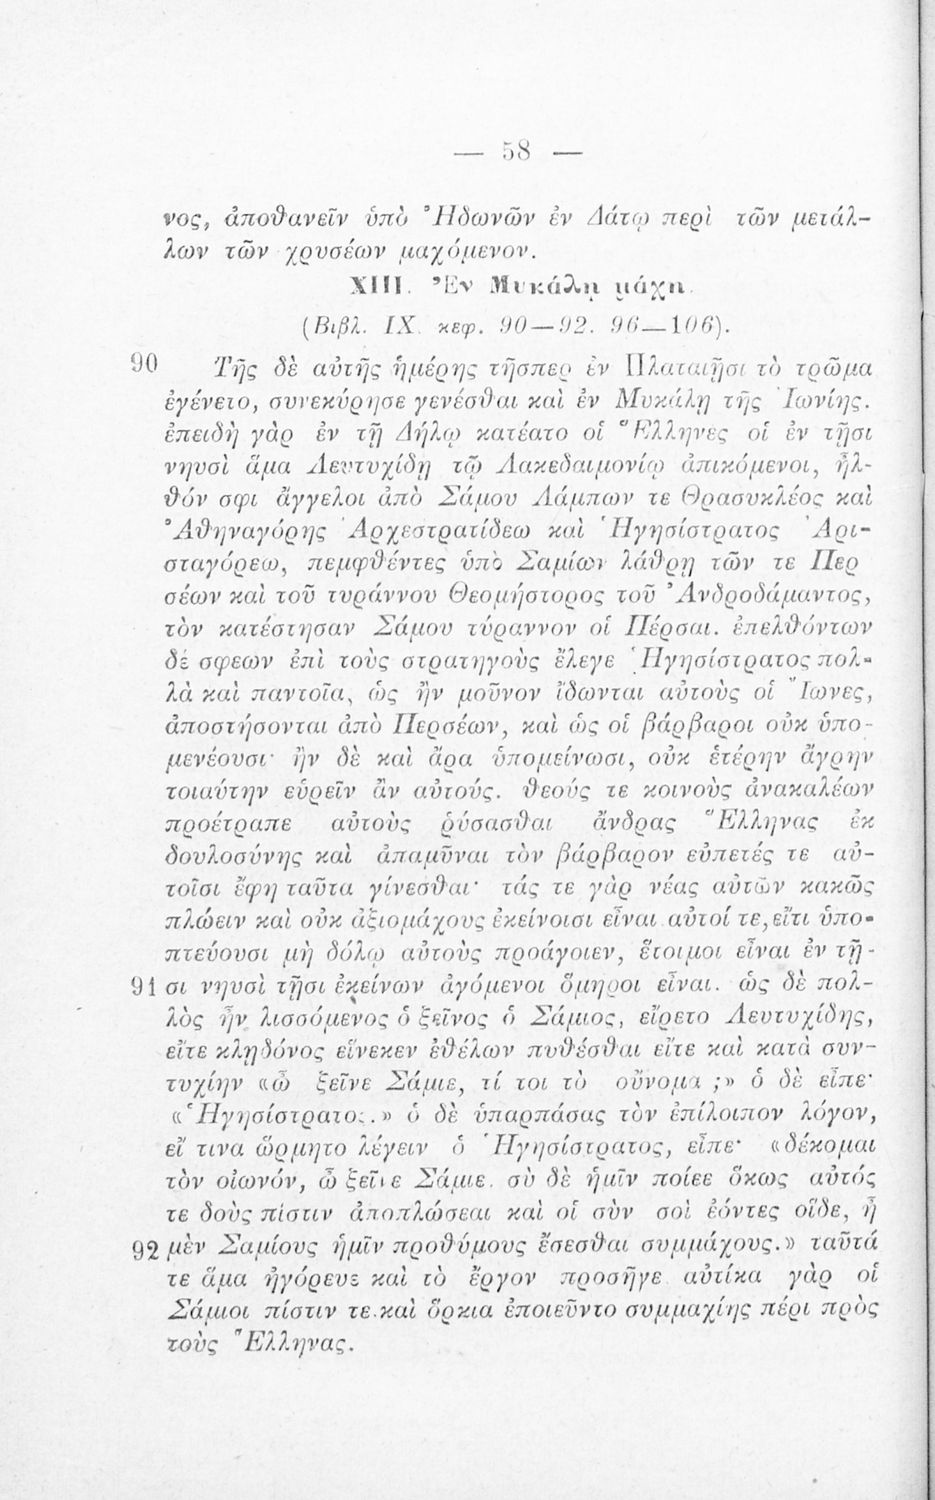 — 58 —
νος, ἀποθανεῖν ὑπὸ Ἠδωνῶν ἐν Δάτῳ περὶ τῶν μετάλ-
λων τῶν χρυσέων μαχόμενον.
XIII. Ἐν Μυκάλῃ μάχη.
(Βιβλ. IX. κεφ. 90—92. 96—106).
90 Τῆς δὲ αὐτῆς ἡμέρης τῆσπερ ἐν Πλαταιῇσι τὸ τρῶμα
ἐγένετο, συνεκύρησε γενέσθαι καὶ ἐν Μυκάλῃ τῆς Ἰωνίης.
ἐπειδὴ γὰρ ἐν τῇ Δήλῳ κατέατο οἱ Ἕλληνες οἱ ἐν τῇσι
νηυσὶ ἅμα Λευτυχίδῃ τῷ Λακεδαιμονίῳ ἀπικόμενοι, ἦλ-
θόν σφι ἄγγελοι ἀπὸ Σάμου Λάμπων τε Θρασυκλέος καὶ
Ἀθηναγόρης Ἀρχεστρατίδεω καὶ Ἡγησίστρατος Ἀρι-
σταγόρεω, πεμφθέντες ὑπὸ Σαμίων λάθρῃ τῶν τε Περ
σέων καὶ τοῦ τυράννου Θεομήστορος τοῦ Ἀνδροδάμαντος,
τὸν κατέστησαν Σάμου τύραννον οἱ Πέρσαι. ἐπελθόντων
δέ σφεων ἐπὶ τοὺς στρατηγοὺς ἔλεγε Ἡγησίστρατος πολ-
λὰ καὶ παντοῖα, ὡς ἢν μοῦνον ἴδωνται αὐτοὺς οἱ Ἴωνες,
ἀποστήσονται ἀπὸ Περσέων, καὶ ὡς οἱ βάρβαροι οὐκ ὑπο-
μενέουσι· ἢν δὲ καὶ ἄρα ὑπομείνωσι, οὐκ ἑτέρην ἄγρην
τοιαύτην εὑρεῖν ἂν αὐτούς. θεούς τε κοινοὺς ἀνακαλέων
προέτραπε αὐτοὺς ῥύσασθαι ἄνδρας Ἕλληνας ἐκ
δουλοσύνης καὶ ἀπαμῦναι τὸν βάρβαρον εὐπετές τε αὐ-
τοῖσι ἔφη ταῦτα γίνεσθαι· τάς τε γὰρ νέας αὐτῶν κακῶς
πλώειν καὶ οὐκ ἀξιομάχους ἐκείνοισι εἶναι αὐτοί τε, εἴ τι ὑπο-
πτεύουσι μὴ δόλῳ αὐτοὺς προάγοιεν, ἕτοιμοι εἶναι ἐν τῇ-
91 σι νηυσὶ τῇσι ἐκείνων ἀγόμενοι ὅμηροι εἶναι. ὡς δὲ πολ-
λὸς ἦν λισσόμενος ὁ ξεῖνος ὁ Σάμιος, εἴρετο Λευτυχίδης,
εἴτε κληδόνος εἵνεκεν ἐθέλων πυθέσθαι εἴτε καὶ κατὰ συν-
τυχίην «ὦ ξεῖνε Σάμιε, τί τοι τὸ οὔνομα ;» ὁ δὲ εἶπε·
«Ἡγησίστρατος.» ὁ δὲ ὑπαρπάσας τὸν ἐπίλοιπον λόγον,
εἴ τινα ὥρμητο λέγειν ὁ Ἡγησίστρατος, εἶπε· «δέκομαι
τὸν οἰωνόν, ὦ ξεῖνε Σάμιε. σὺ δὲ ἡμῖν ποίεε ὅκως αὐτός
τε δοὺς πίστιν ἀποπλώσεαι καὶ οἱ σὺν σοὶ ἐόντες οἵδε, ἦ
92 μὲν Σαμίους ἡμῖν προθύμους ἔσεσθαι συμμάχους.» ταῦτά
τε ἅμα ἠγόρευε καὶ τὸ ἔργον προσῆγε αὐτίκα γὰρ οἱ
Σάμιοι πίστιν τε καὶ ὅρκια ἐποιεῦντο συμμαχίης πέρι πρὸς
τοὺς Ἕλληνας.